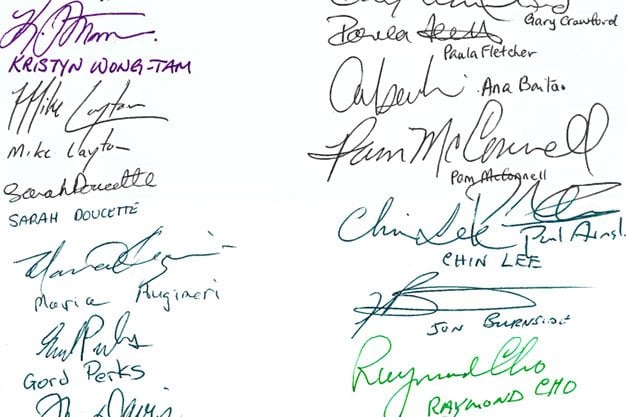 KRISTYN WONG-TAM
Mike Layton
Mike Layton
Sarah Doucette
SARAH DOUCETTE
Maria Augimeri
Gord Perks
Gord Perks
Gary Crawford
Paula Fletcher
Paula Fletcher
Ana Bailão
Pam McConnell
Pam McConnell
Chin Lee
Paul Ainsl
CHIN LEE
JON BURNSIDE
Raymond Cho
RAYMOND CHO